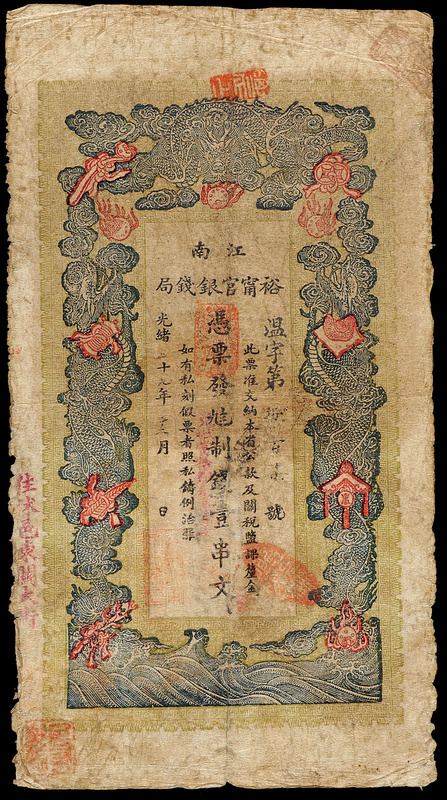 江南
裕甯官銀錢局
温字第百號
此票准交納本省公款及關稅鹽課釐金
憑票發制錢壹串文
如有私刻假票者照私鑄例治罪
光緒二十九年月日
住本邑東關大街